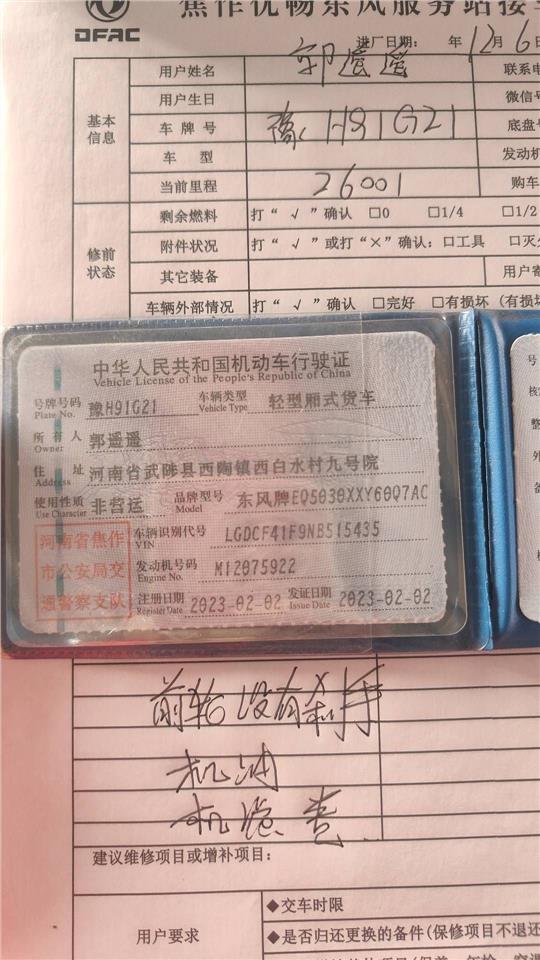 焦作优畅东风服务站接车
DFAC
进厂日期： 年 12月 6日
用户姓名 郭遥遥 联系电
基本信息
用户生日 微信号
车牌号 豫H91G21 底盘号
车 型 发动机
当前里程 26001 购车
修前状态
剩余燃料 打“√”确认 □0 □1/4 □1/2
附件状况 打“√”或打“×”确认：□工具 □灭
其它装备 用户寄
车辆外部情况 打“√”确认 □完好 □有损坏 (有损坏
中华人民共和国机动车行驶证
Vehicle License of the People's Republic of China
号牌号码 豫H91G21 车辆类型 轻型厢式货车
Plate No. Vehicle Type
所有人 郭遥遥
Owner
住 址 河南省武陟县西陶镇西白水村九号院
Address
使用性质 非营运 品牌型号 东风牌EQ5030XXY60Q7AC
Use Character Model
河南省焦作市公安局交通警察支队
车辆识别代号 LGDCF41F9NB515435
VIN
发动机号码 M12075922
Engine No.
注册日期 2023-02-02 发证日期 2023-02-02
Register Date Issue Date
前轮没有刹手
机油
机滤壳
建议维修项目或增补项目：
用户要求
◆交车时限
◆是否归还更换的备件(保修项目不退还